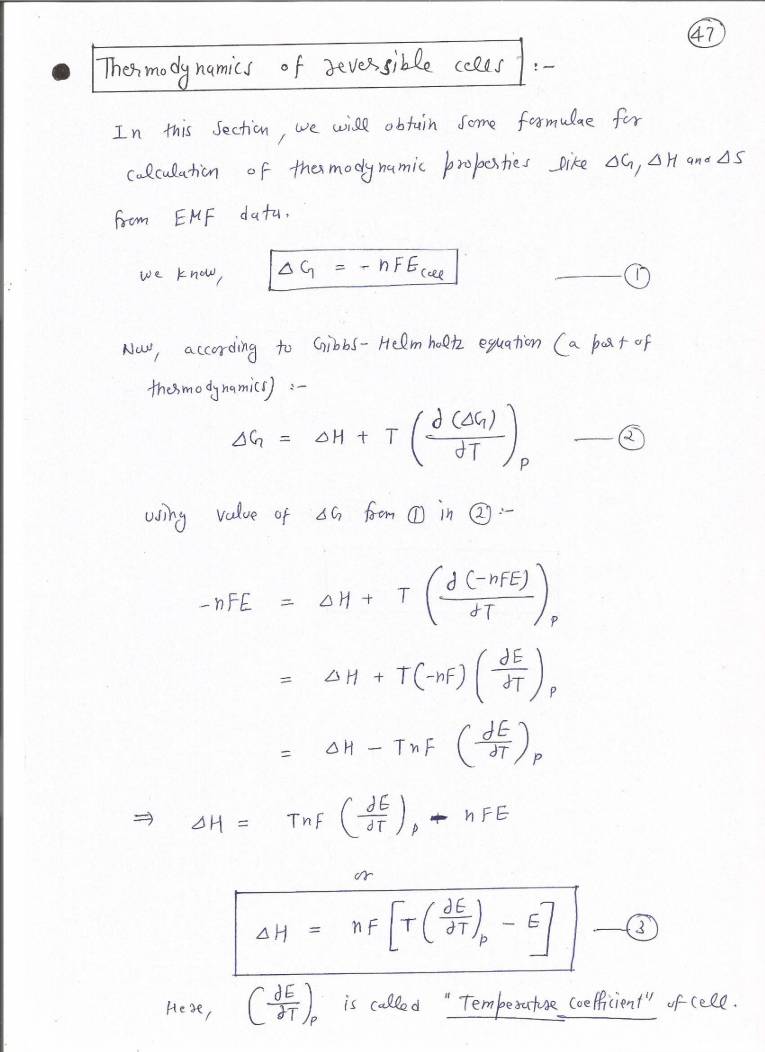 47
• Thermodynamics of reversible cells :-
In this section, we will obtain some formulae for
calculation of thermodynamic properties like ΔG, ΔH and ΔS
from EMF data.
we know, ΔG = - nFEcell —— ①
Now, according to Gibbs-Helmholtz equation (a part of
thermodynamics) :-
ΔG = ΔH + T (∂(ΔG)/∂T)p —— ②
using value of ΔG from ① in ② :-
-nFE = ΔH + T (∂(-nFE)/∂T)p
= ΔH + T(-nF) (∂E/∂T)p
= ΔH - TnF (∂E/∂T)p
⇒ ΔH = TnF (∂E/∂T)p - nFE
or
ΔH = nF [T (∂E/∂T)p - E] —— ③
Here, (∂E/∂T)p is called "Temperature coefficient" of cell.